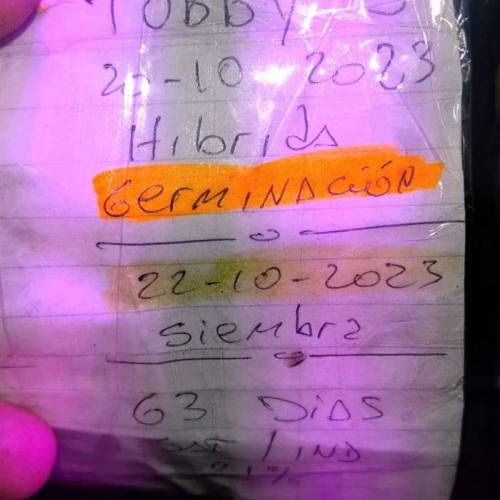 Tobby
-10 2023
Hibrida
Germinación
22-10-2023
siembra
63 Dias
/ IND